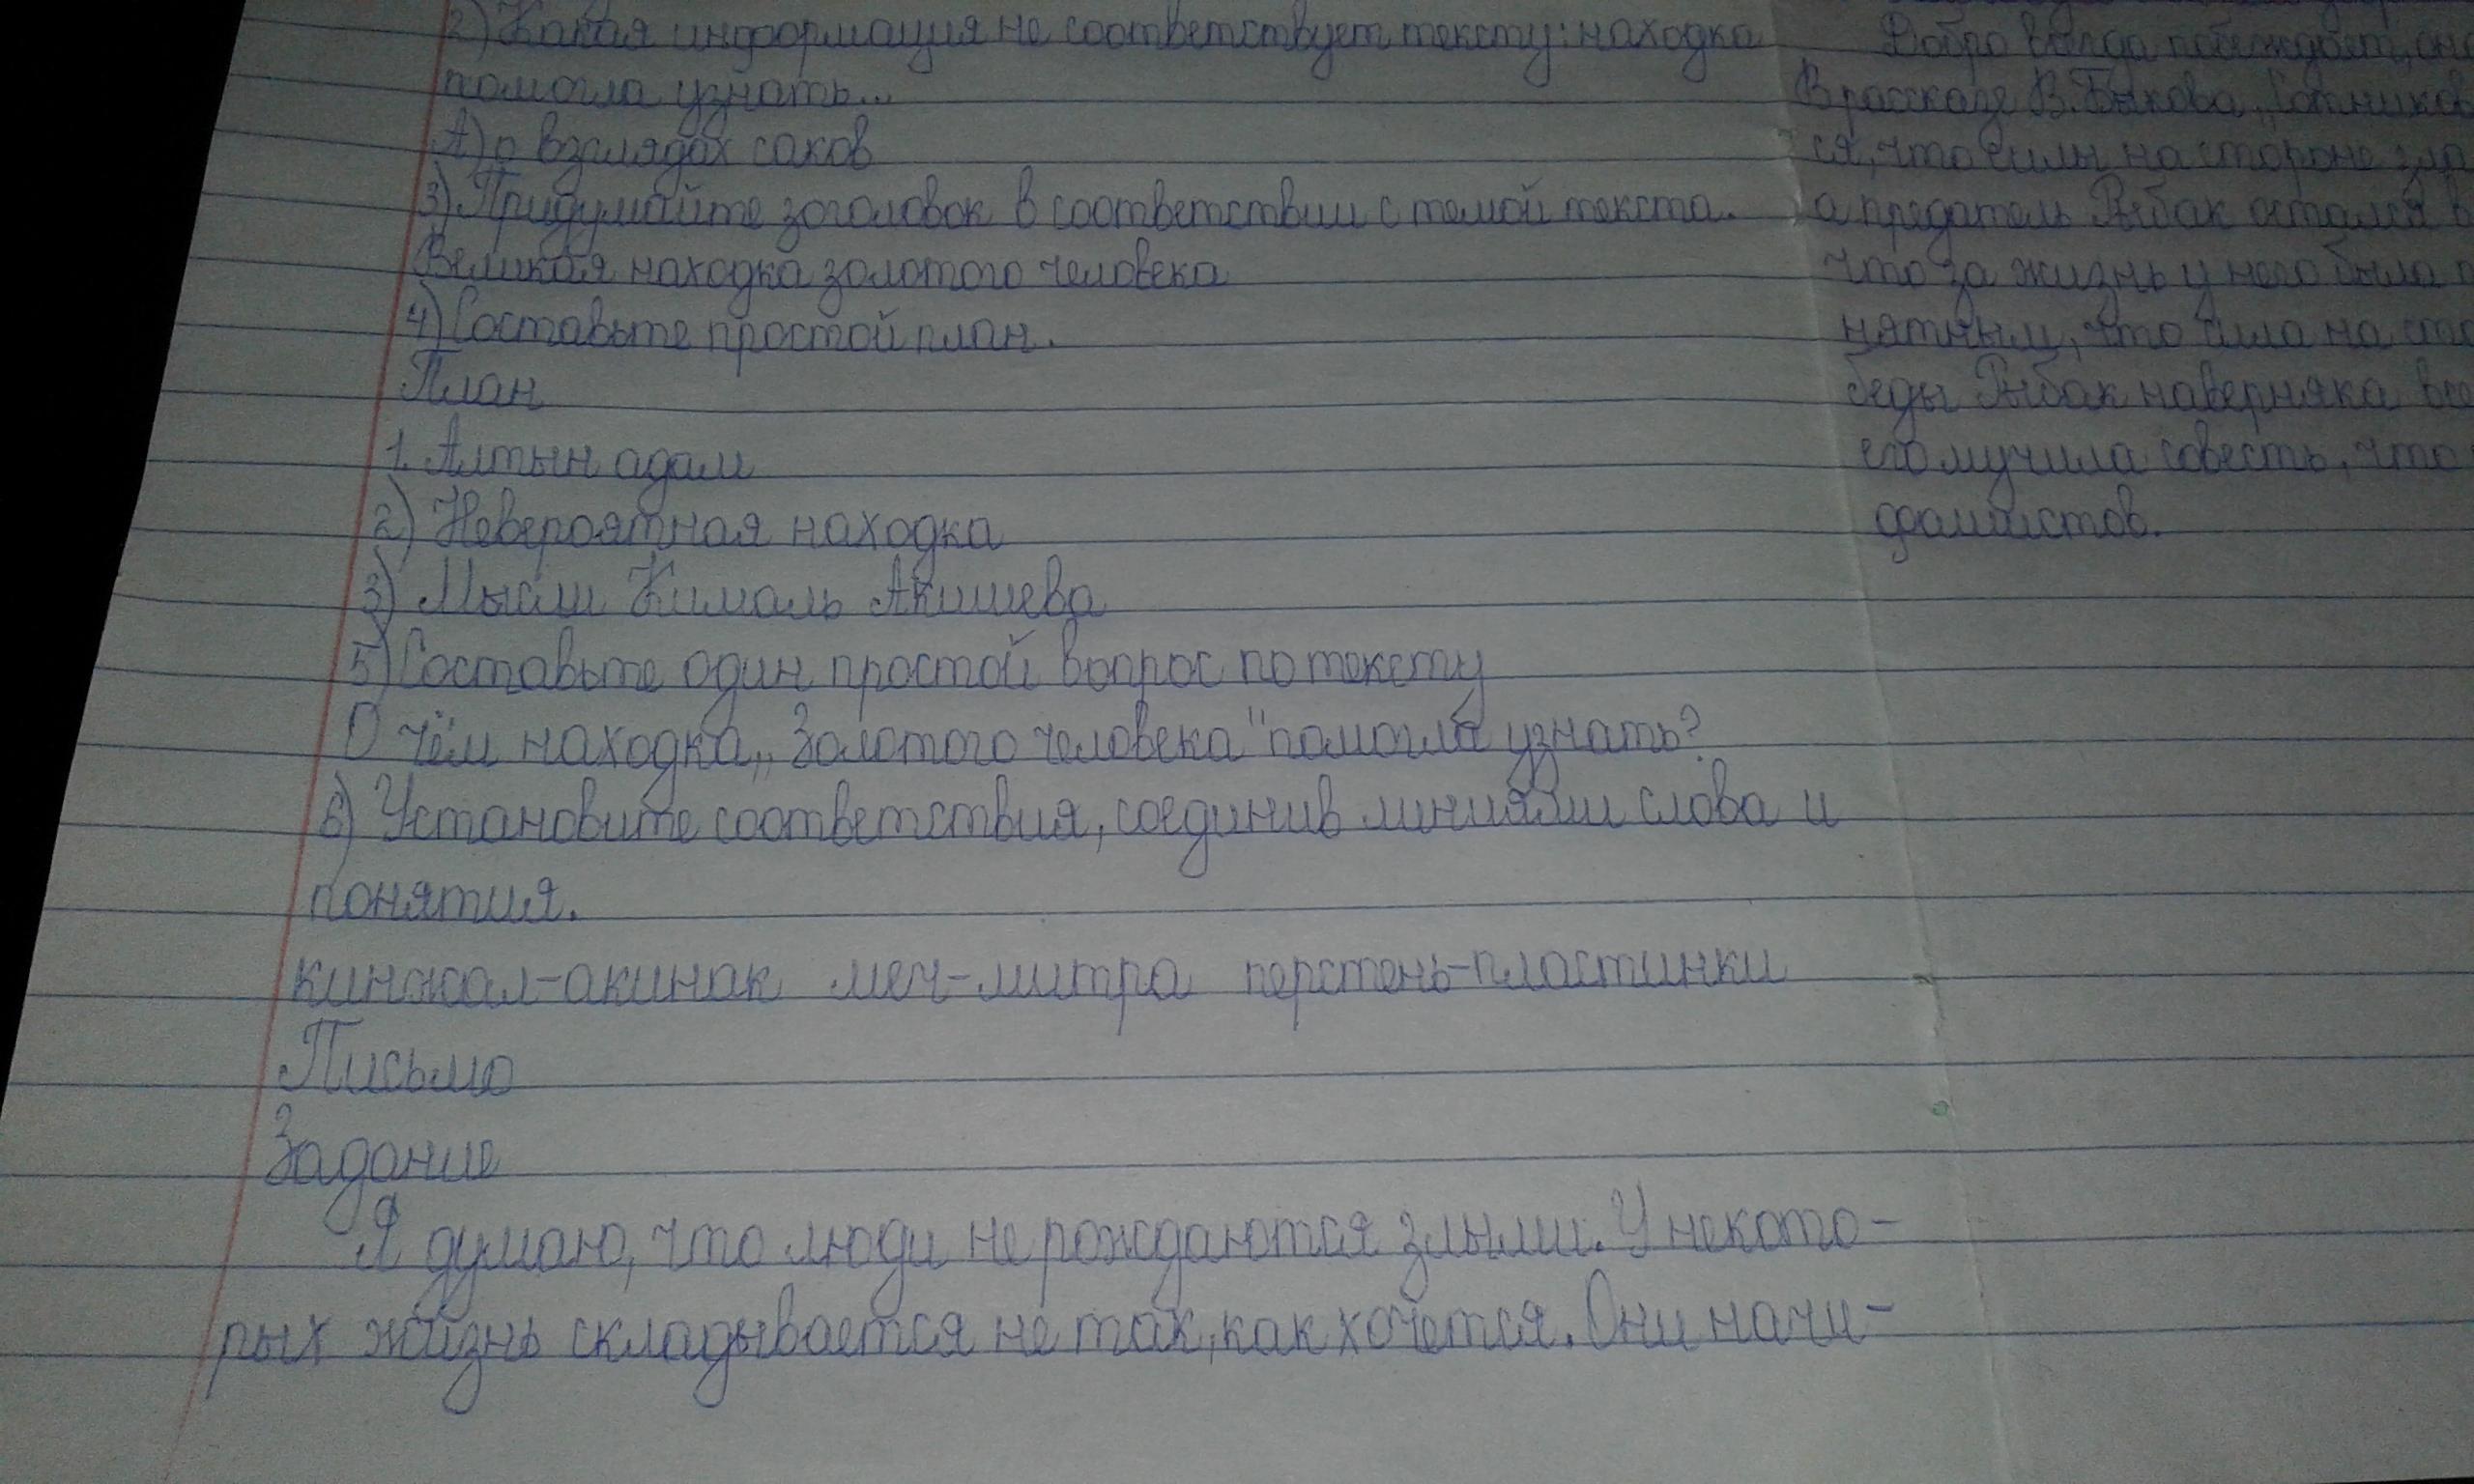 2) Какая информация не соответствует тексту: находка
помогла узнать...
А) о взглядах саков
3) Придумайте заголовок в соответствии с темой текста.
Великая находка золотого человека
4) Составьте простой план.
План
1. Алтын адам
2) Невероятная находка
3) Мысли Кималь Акишева
5) Составьте один простой вопрос по тексту
О чём находка „Золотого человека" помогла узнать?
6) Установите соответствия, соединив линиями слова и
понятия.
кинжал-акинак меч-митра перстень-пластинки
Письмо
Задание
Я думаю, что люди не рождаются злыми. У некото-
рых жизнь складывается не так, как хочется. Они начи-
Добро всегда побеждает, оно
В рассказе В. Быкова „Сотников
ся, что силы на стороне зла
а предатель Рыбак остался в
что за жизнь у него была
нятным, что сила на сто
беды Рыбак наверняка все
его мучила совесть, что
фашистов.